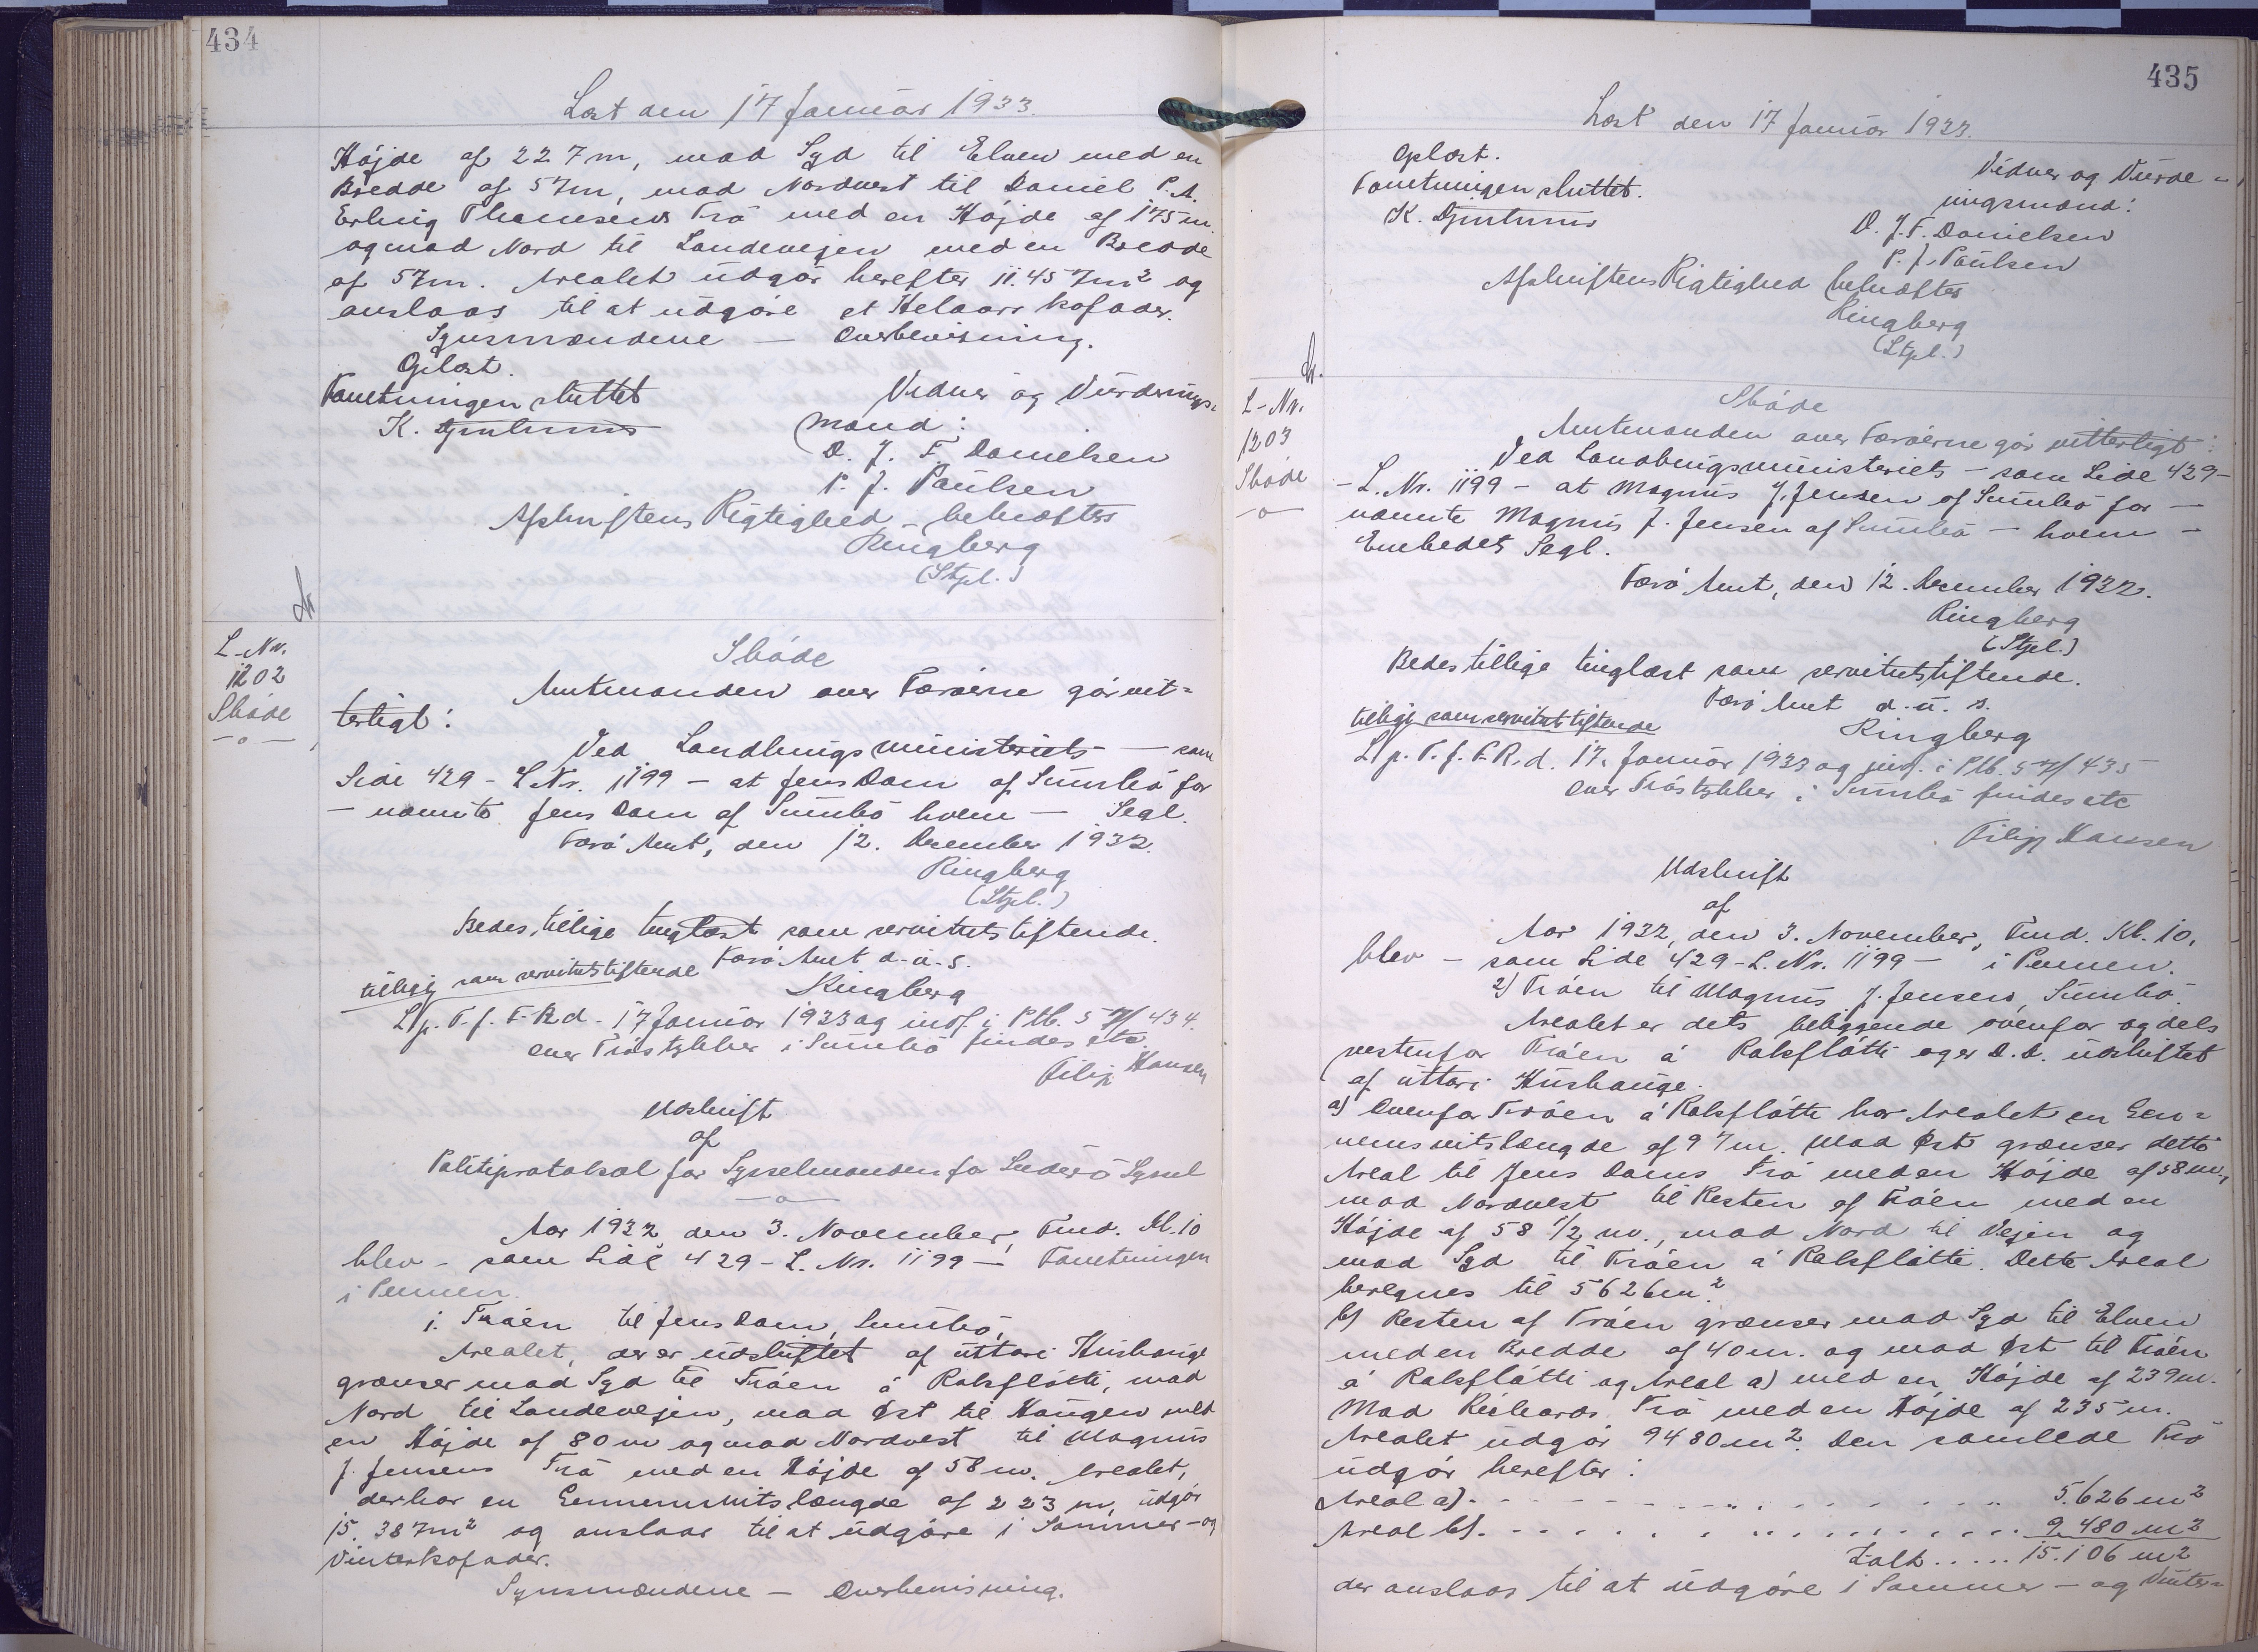 434
Læst den 17 Januar 1933.
Højde af 227 m, mod Syd til Elven med en
Bredde af 57m, mod Nordvest til Daniel P. A.
Erling Thomsens Trø med en Højde af 175 m.
og mod Nord til Landevejen med en Bredde
af 57m. Arealet udgør herefter 11.457m² og
anslaas til at udgøre et Helaars kofoder.
Synsmændene — Overbevisning.
Oplæst.
Forretningen sluttet
Vidner og Vurderings-
K.
mænd:
D. J. F. Danielsen
P. J. Paulsen
Afskriftens Rigtighed - bekræftes
Ringberg
(Stpl.)
L-Nr.
1202
Skøde
—o—
Skøde
Amtmanden over Færøerne gør vit-
terligt:
Ved Landbrugsministeriets — som
Side 429 - L Nr. 1199 - at Jens Dam af Sumbø for
— nævnte Jens Dam af Sumbø hvem — Segl.
Færø Amt, den 12. December 1932.
Ringberg
(Stpl.)
Bedes tillige tinglæst som servitutstiftende.
Færø Amt d. u. s.
tillige som servitutstiftende
Ringberg
L. p. T. f. F. R d. 17 Januar 1933 og indf. i Ptb. 57/434.
over Trøstykker i Sumbø findes etc.
Filip Hansen
Udskrift
af
Politiprotokol for Sysselmanden for Suderø Syssel
—o—
Aar 1932, den 3. November, Fmd. Kl. 10
blev - som Side 429 - L. Nr. 1199 — Forretningen
i Pennen.
1. Trøen til Jens Dam, Sumbø,
Arealet, der er udskiftet af uttari Hushauge
grænser mod Syd til Trøen á Roksfløtti, mod
Nord til Landevejen, mod Øst til Haugen med
en Højde af 80 m og mod Nordvest til Magnus
J. Jensens Trø med en Højde af 58 m. Arealet,
der har en Gennemsnitslængde af 223 m, udgør
15.387m² og anslaas til at udgøre 1 Sommer- og
Vinterkofoder.
Synsmændene — Overbevisning.
435
Læst den 17 Januar 1933.
Oplæst.
Forretningen sluttet.
Vidner og Vurde-
K.
ringsmænd:
D. J. F. Danielsen
P. J. Paulsen
Afskriftens Rigtighed bekræftes
Ringberg
(Stpl.)
L-Nr.
1203
Skøde
—o—
Skøde
Amtmanden over Færøerne gør vitterligt:
Ved Landbrugsministeriets — som Side 429-
- L. Nr. 1199 - at Magnus J. Jensen af Sumbø for —
nævnte Magnus J. Jensen af Sumbø — hvem -
Embedets Segl.
Færø Amt, den 12. December 1932.
Ringberg
(Stpl.)
Bedes tillige tinglæst som servitutstiftende.
Færø Amt d. u. s.
tillige som servitutstiftende
Ringberg
L. p. T. f. F. R. d. 17. Januar 1933 og indf. i Ptb. 57/435
over Trøstykker i Sumbø findes etc
Filip Hansen
Udskrift
af
Aar 1932, den 3. November, Fmd. Kl. 10,
blev - som Side 429 - L. Nr. 1199 — i Pennen.
2) Trøen til Magnus J. Jensen, Sumbø.
Arealet er dels beliggende ovenfor og dels
vestenfor Trøen á Roksfløtti og er d.d. udskiftet
af uttari Hushauge.
a) Ovenfor Trøen á Roksfløtti har Arealet en Gen-
nemsnitslængde af 97m. Mod Øst grænser dette
Areal til Jens Dams Trø med en Højde af 58 m.,
mod Nordvest til Resten af Trøen med en
Højde af 58 1/2 m., mod Nord til Vejen og
mod Syd til Trøen á Roksfløtti. Dette Areal
beregnes til 5626m²
b) Resten af Trøen grænser mod Syd til Elven
med en Bredde af 40 m. og mod Øst til Trøen
á Roksfløtti og Areal a) med en Højde af 239m.
Mod Richards Trø med en Højde af 235 m.
Arealet udgør 9480 m². Den samlede Trø
udgør herefter:
Areal a) . . . . . . . . . . 5.626 m²
Areal b) . . . . . . . . . . 9.480 m²
Ialt ..... 15.106 m²
der anslaas til at udgøre 1 Sommer - og Vinter-